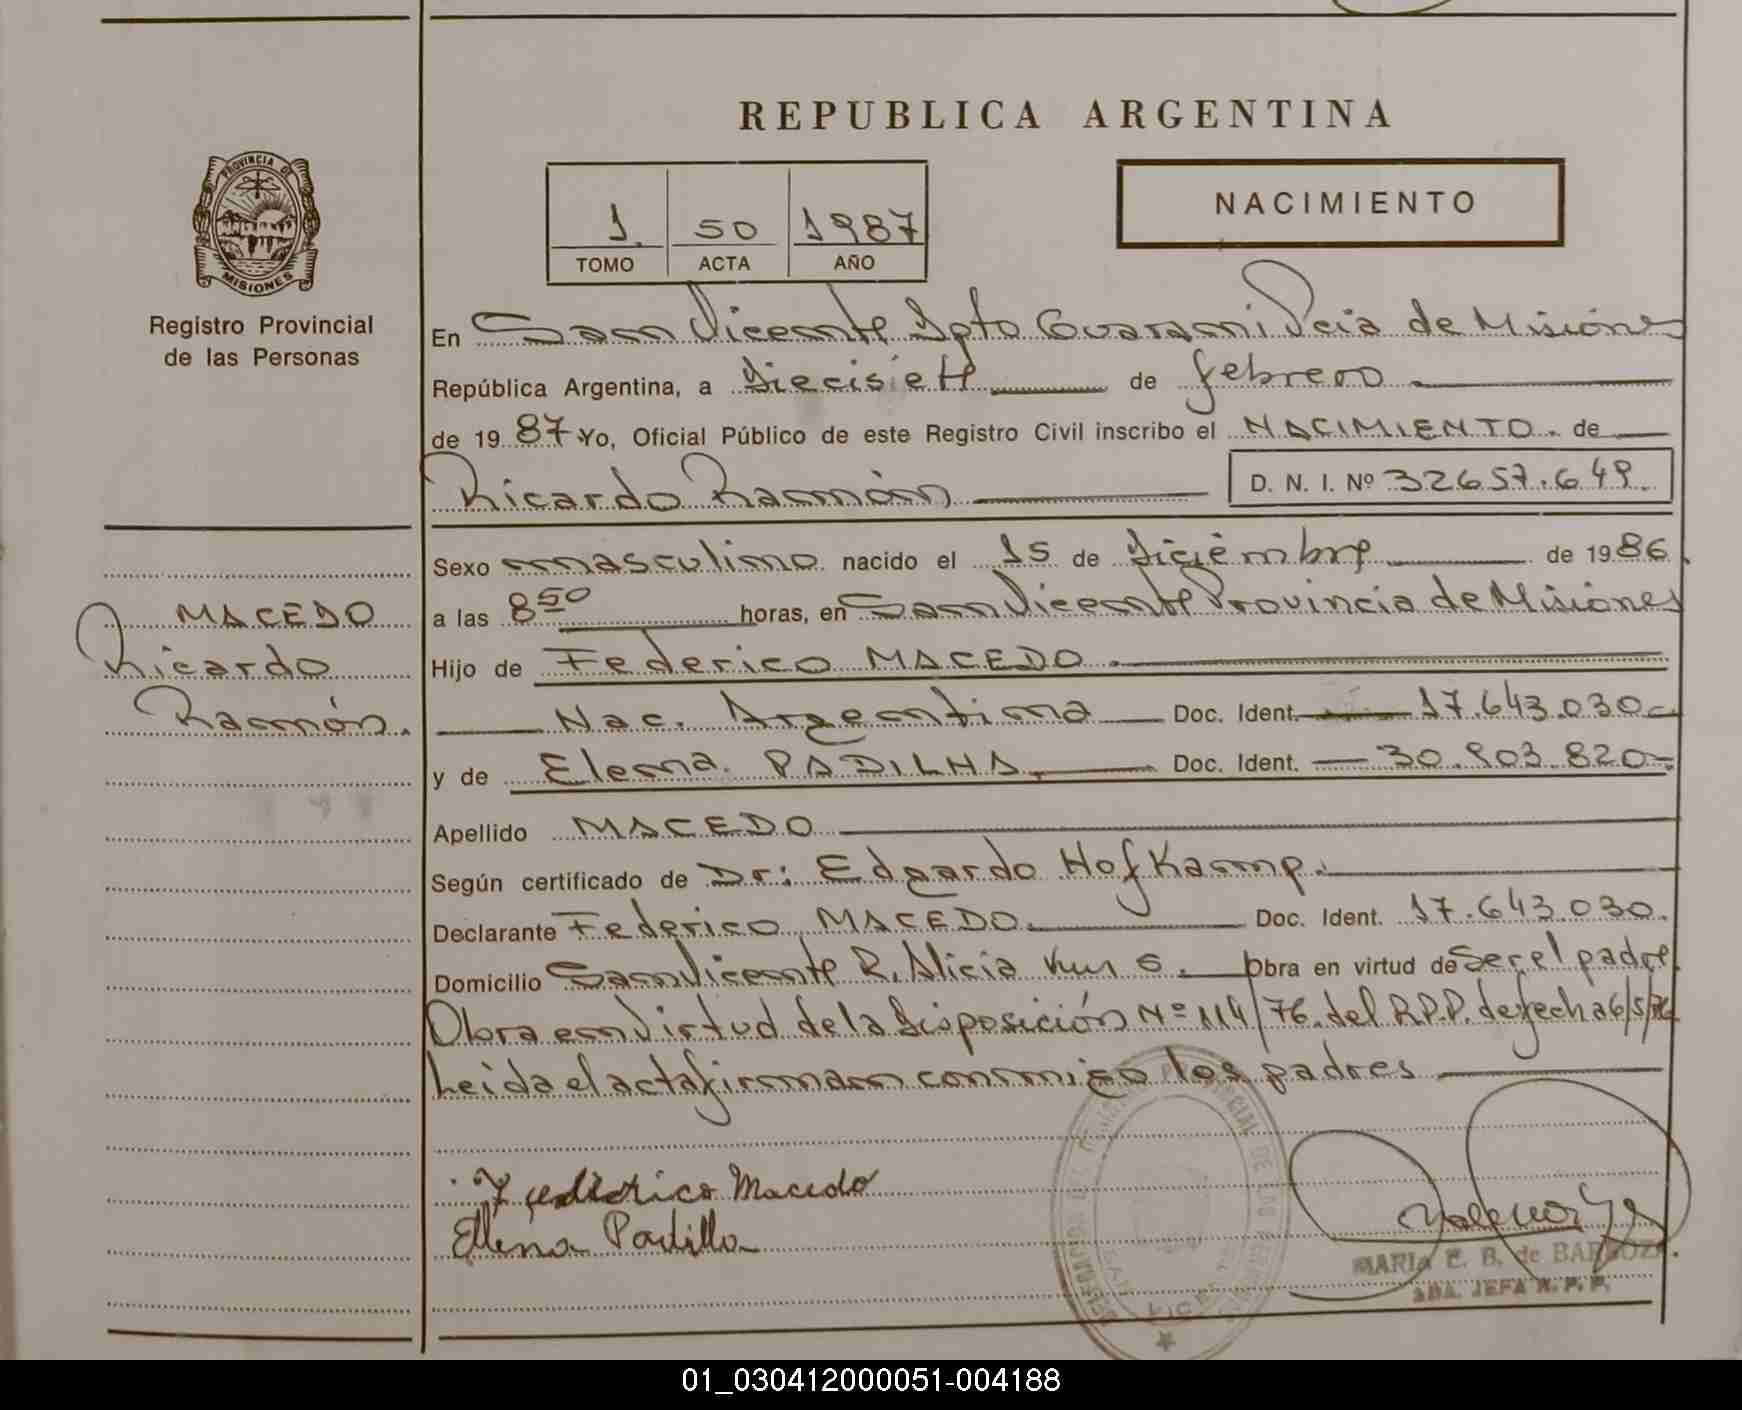 REPUBLICA ARGENTINA
PROVINCIA DE
MISIONES
Registro Provincial
de las Personas
1 50 1987
TOMO ACTA AÑO
NACIMIENTO
En San Vicente Dpto Guaraní Pcia de Misiones
República Argentina, a diecisiete de febrero
de 1987 Yo, Oficial Público de este Registro Civil inscribo el NACIMIENTO. de
Ricardo Ramón D. N. I. Nº 32657.649.
Sexo masculino nacido el 15 de diciembre de 1986.
a las 8 50 horas, en San Vicente Provincia de Misiones
Hijo de Federico MACEDO.
Nac. Argentina Doc. Ident. 17.643.030
y de Elena PADILHA. Doc. Ident. 30.903.820
Apellido MACEDO
Según certificado de Dr: Edgardo Hofkamp.
Declarante Federico MACEDO. Doc. Ident. 17.643.030.
Domicilio San Vicente R. Alicia km 5. Obra en virtud de Ser el padre
Obra en virtud de la Disposición Nº 114/76 del R.P.P. de fecha 6/5/76
Leida el acta firman conmigo los padres
MACEDO
Ricardo
Ramón.
Federico Macedo
Ellena Padilla
MARIA E. B. de BARBOZA
JEFA R. P. P.
01_030412000051-004188